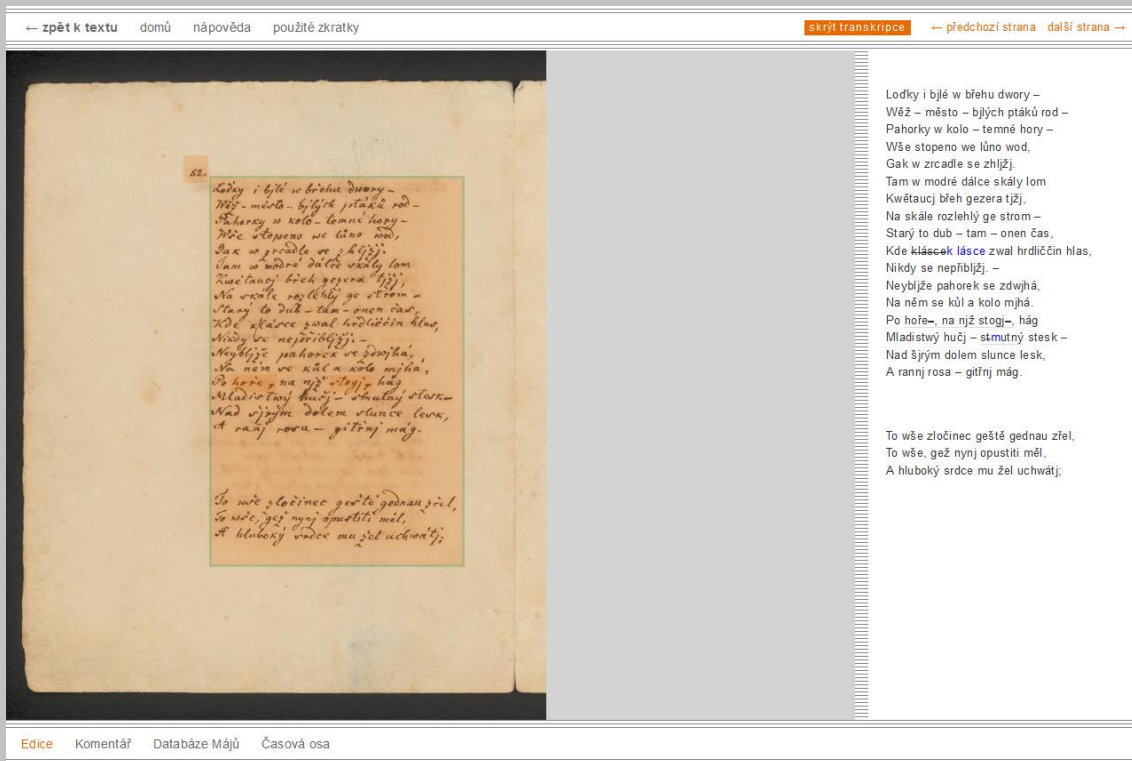 ← zpět k textu domů nápověda použité zkratky skrýt transkripce ← předchozí strana další strana →
52.
Loďky i bjlé w břehu dwory –
Wěž – město – bjlých ptáků rod –
Pahorky w kolo – temné hory –
Wše stopeno we lůno wod,
Gak w zrcadle se zhljžj.
Tam w modré dálce skály lom
Kwětaucj břeh gezera tjžj,
Na skále rozlehlý ge strom –
Starý to dub – tam – onen čas,
Kde k lásce zwal hrdliččin hlas,
Nikdy se nepřibljžj. –
Neybljže pahorek se zdwjhá,
Na něm se kůl a kolo mjhá,
Po hoře, na njž stogj, hág
Mladistwý hučj – smutný stesk –
Nad šjrým dolem slunce lesk,
A ranj rosa – gitřnj mág.
To wše zločinec geště gednau zřel,
To wše, gež nynj opustiti měl,
A hluboký srdce mu žel uchwátj;
Loďky i bjlé w břehu dwory –
Wěž – město – bjlých ptáků rod –
Pahorky w kolo – temné hory –
Wše stopeno we lůno wod,
Gak w zrcadle se zhljžj.
Tam w modré dálce skály lom
Kwětaucj břeh gezera tjžj,
Na skále rozlehlý ge strom –
Starý to dub – tam – onen čas,
Kde kláscek lásce zwal hrdliččin hlas,
Nikdy se nepřibljžj. –
Neybljže pahorek se zdwjhá,
Na něm se kůl a kolo mjhá.
Po hoře–, na njž stogj–, hág
Mladistwý hučj – stmutný stesk –
Nad šjrým dolem slunce lesk,
A rannj rosa – gitřnj mág.
To wše zločinec geště gednau zřel,
To wše, gež nynj opustiti měl,
A hluboký srdce mu žel uchwátj;
Edice Komentář Databáze Májů Časová osa